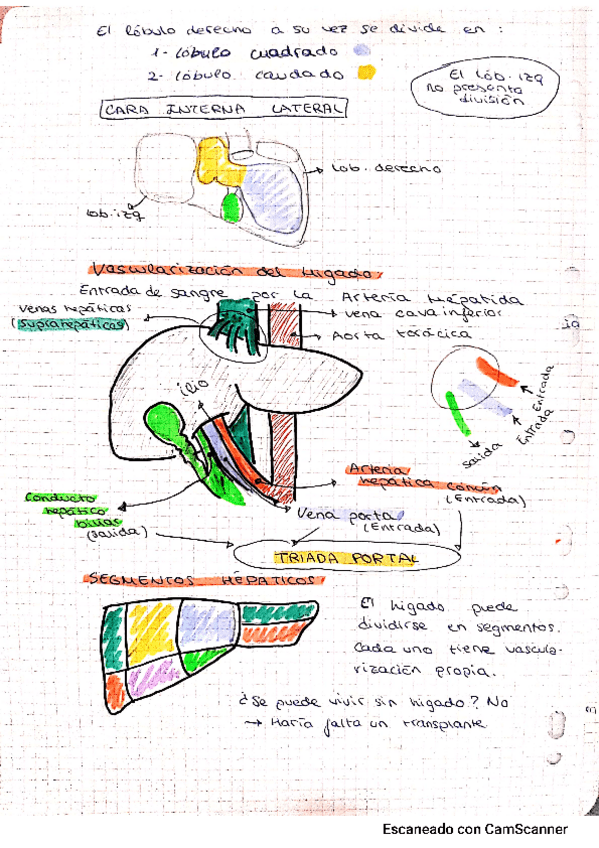 El lóbulo derecho a su vez se divide en :
1- lóbulo cuadrado
2- lóbulo caudado
El lób. izq
no presenta
división
CARA INTERNA LATERAL
lob. derecho
lob. izq
Vascularización del Hígado
Entrada de sangre por la Arteria Hepática
Venas hepáticas
(suprahepáticas)
vena cava inferior
Aorta torácica
ilio
Entrada
Entrada
salida
Arteria
hepática común
(Entrada)
Conducto
hepático
biliar
(salida)
Vena porta
(Entrada)
TRIADA PORTAL
SEGMENTOS HEPÁTICOS
El hígado puede
dividirse en segmentos.
Cada uno tiene vascula-
rización propia.
¿Se puede vivir sin hígado? No
→ Haría falta un transplante
Escaneado con CamScanner